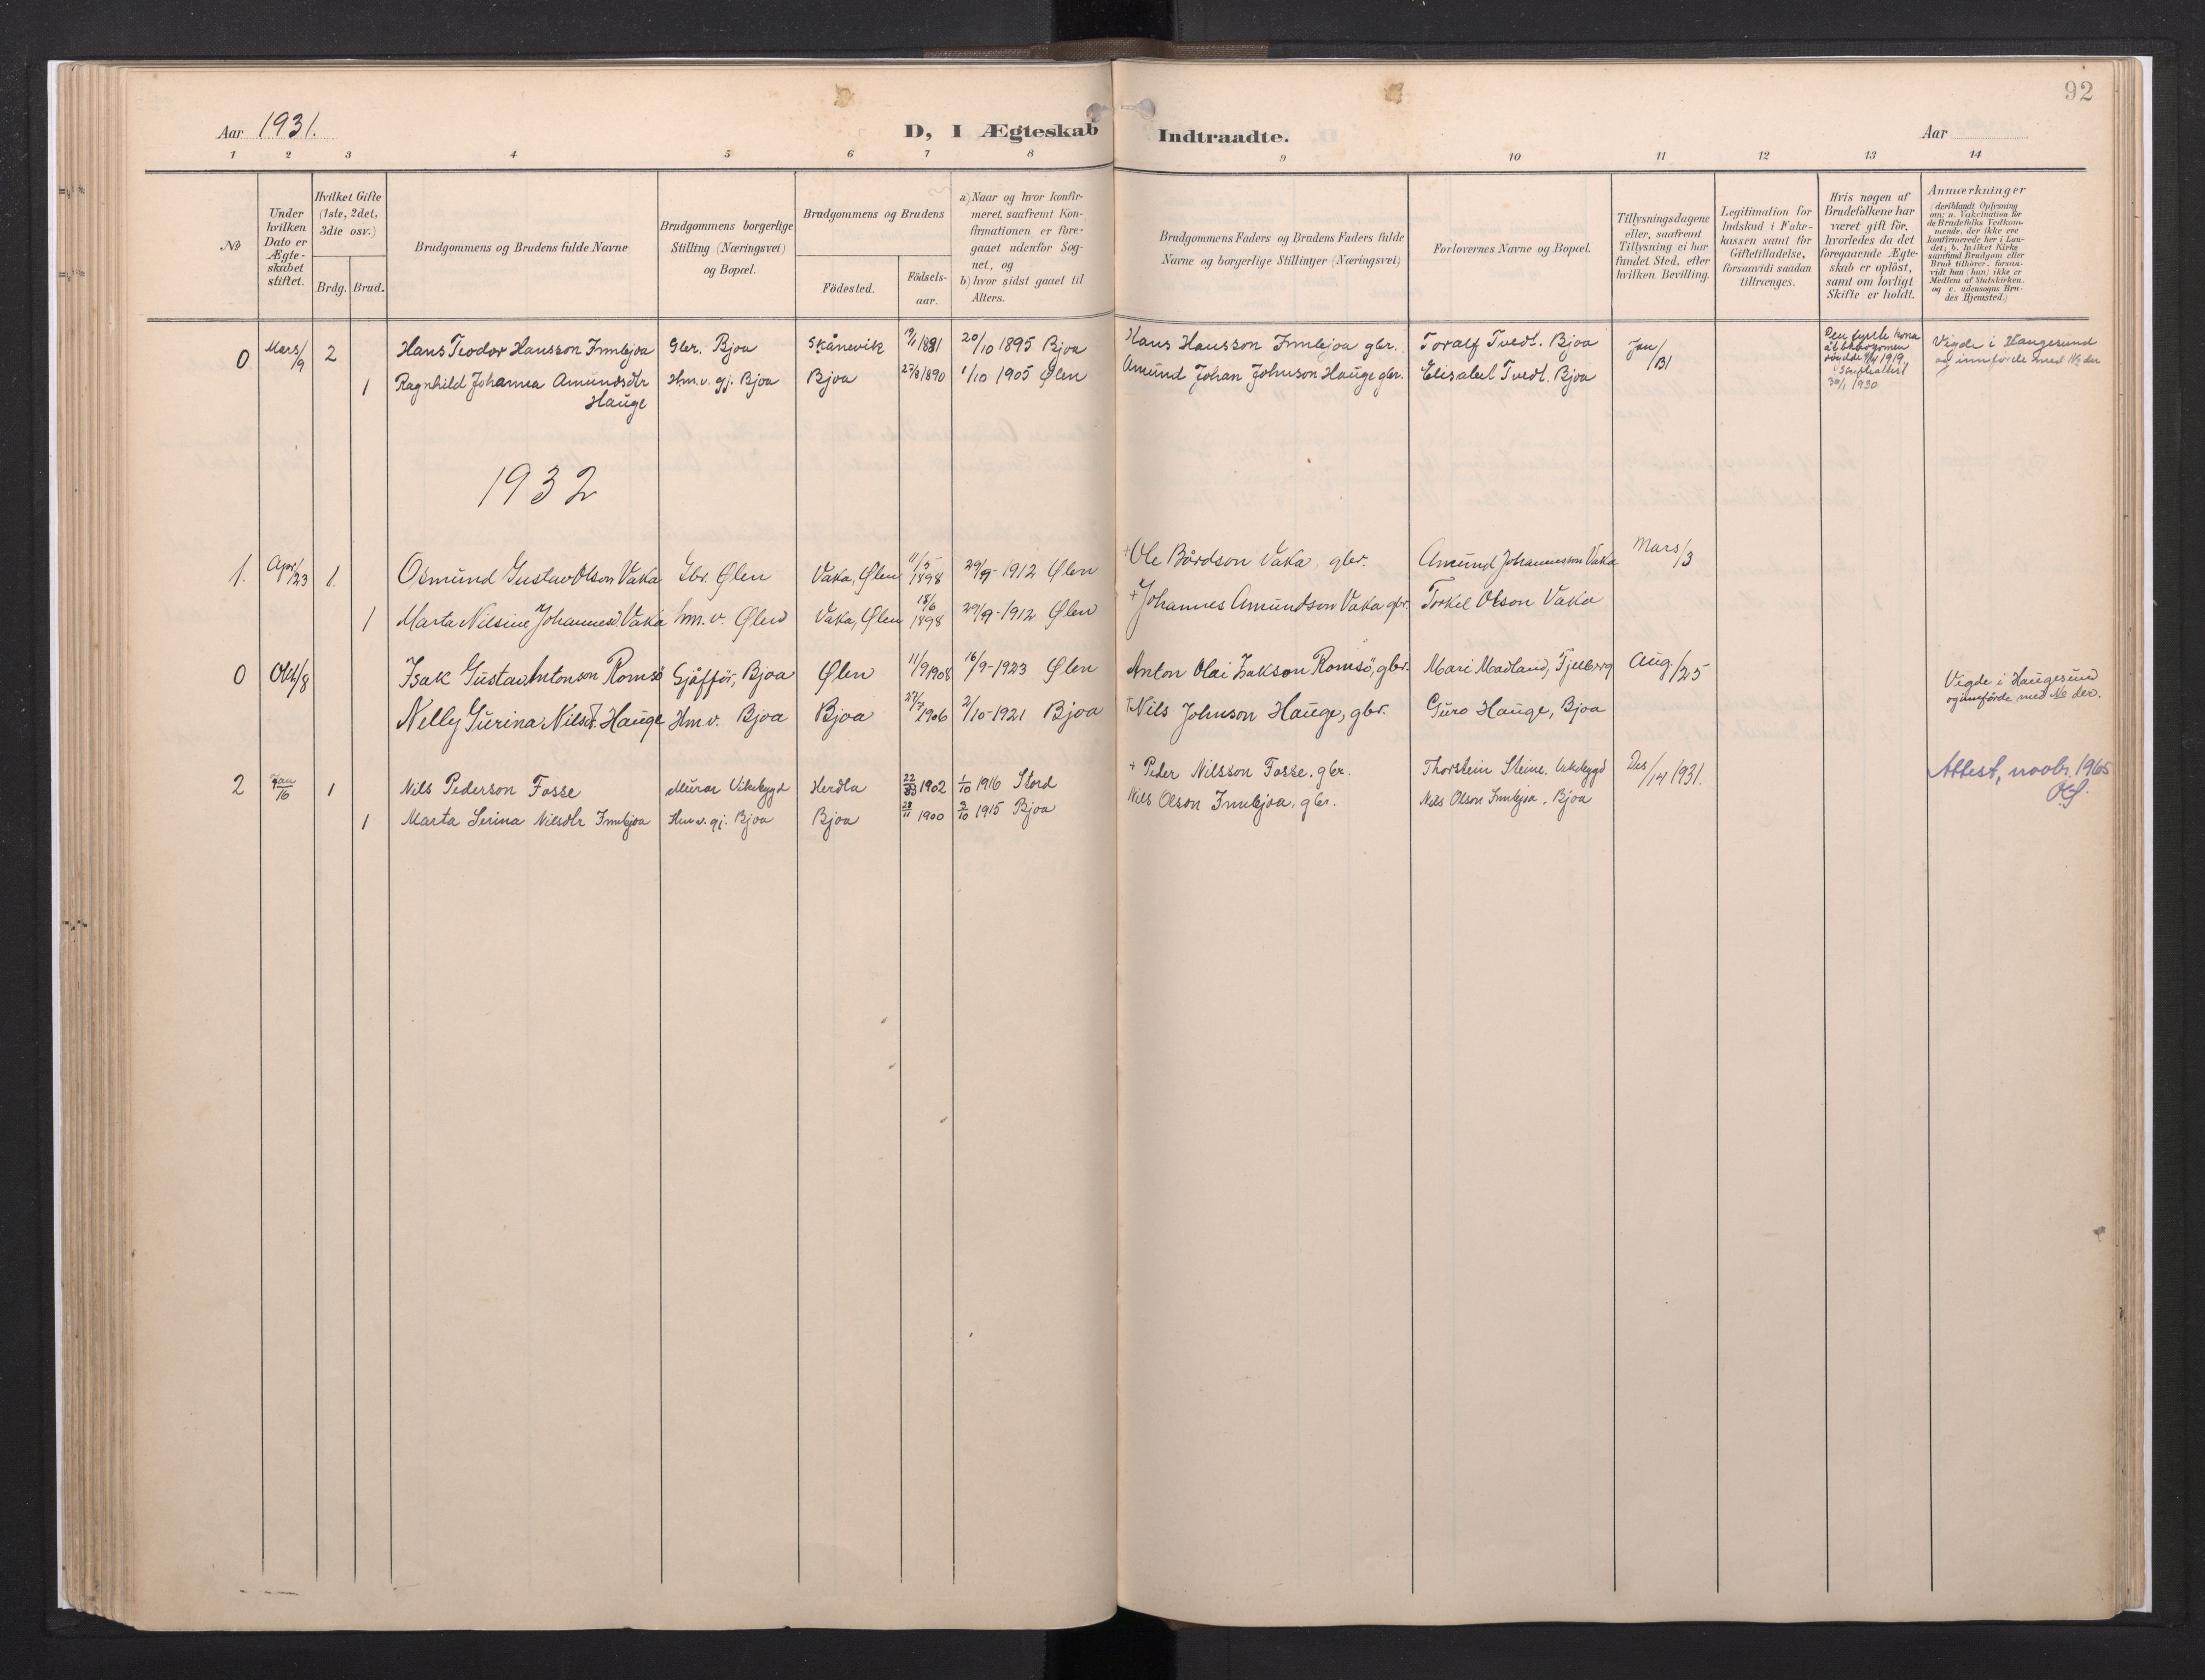 92
Aar 1931.
D, I Ægteskab Indtraadte.
Aar
1 2 3 4 5 6 7 8 9 10 11 12 13 14
No
Under hvilken Dato er Ægte-skabet stiftet.
Hvilket Gifte (1ste, 2det, 3die osv.)
Brdg. Brud.
Brudgommens og Brudens fulde Navne
Brudgommens borgerlige Stilling (Næringsvei) og Bopæl.
Brudgommens og Brudens
Födested.
Födsels-aar.
a) Naar og hvor konfir-meret, saafremt Kon-firmationen er fore-gaaet udenfor Sog-net, og
b) hvor sidst gaaet til Alters.
Brudgommens Faders og Brudens Faders fulde Navne og borgerlige Stillinger (Næringsvei)
Forlovernes Navne og Bopæl.
Tillysningsdagene eller, saafremt Tillysning ei har fundet Sted, efter hvilken Bevilling.
Legitimation for Indskud i Enke-kassen samt for Giftetilladelse, forsaavidt saadan tiltrænges.
Hvis nogen af Brudefolkene har været gift för, hvorledes da det foregaaende Ægte-skab er oplöst, samt om lovligt Skifte er holdt.
Anmærkninger (deriblandt Oplysning om: a. Vakcination for de Brudefolks Vedkom-mende, der ikke ere konfirmerede her i Lan-det; b. hvilket Kirke-samfund Brudgom eller Brud tilhører, forsaa-vidt han (hun) ikke er Medlem af Statskirken, og c. udensogns Bru-des Hjemsted.)
0 Mars/9 2 Hans Teodor Hansson Innbjoa Gbr. Bjoa Skånevik 19/1 1881 20/10 1895 Bjoa Hans Hansson Innbjoa gbr. Toralf Tvedt. Bjoa Jan/31 Den fyrste kona åt 1919, 30/1 1930 Vigde i Haugesund og innförde med No der
1 Ragnhild Johanna Amundsdtr Hauge Hm.v. gj. Bjoa Bjoa 27/8 1890 1/10 1905 Ølen Amund Johan Johnson Hauge gbr. Elisabet Tvedt. Bjoa
1932
1. Apr/23 1. Osmund Gustav Olson Vaka Gbr. Ølen Vaka, Ølen 11/5 1898 29/9-1912 Ølen +Ole Bårdson Vaka, gbr. Amund Johannesson Vaka Mars/3
1 Marta Nilsine Johannesd. Vaka hm.v. Ølen Vaka, Ølen 18/6 1898 29/9-1912 Ølen +Johannes Amundson Vaka gbr. Torkel Olson Vaka
0 Okt/8 Isak Gustav Antonson Romsö Sjåfför, Bjoa Ølen 11/9 1908 16/9-1923 Ølen Anton Olai Isakson Romsö, gbr. Mari Madland, Fjelberg Aug./25 Vigde i Haugesund og innförde med No der.
Nelly Gurina Nilsd. Hauge Hm.v. Bjoa Bjoa 27/7 1906 2/10-1921 Bjoa +Nils Johnson Hauge, gbr. Guro Hauge, Bjoa
2 Jan/16 1 Nils Pederson Fosse Murar Vikebygd Herdla 1902 1/10 1916 Stord + Peder Nilsson Fosse. gbr. Thorstein Steine. Vikebygd Des/14 1931. Attest, novbr. 1965
1 Marta Serina Nilsdtr Innbjoa Hm.v. gj. Bjoa Bjoa 28/11 1900 3/10 1915 Bjoa Nils Olson Innbjoa. gbr. Nils Olson Innbjoa. Bjoa